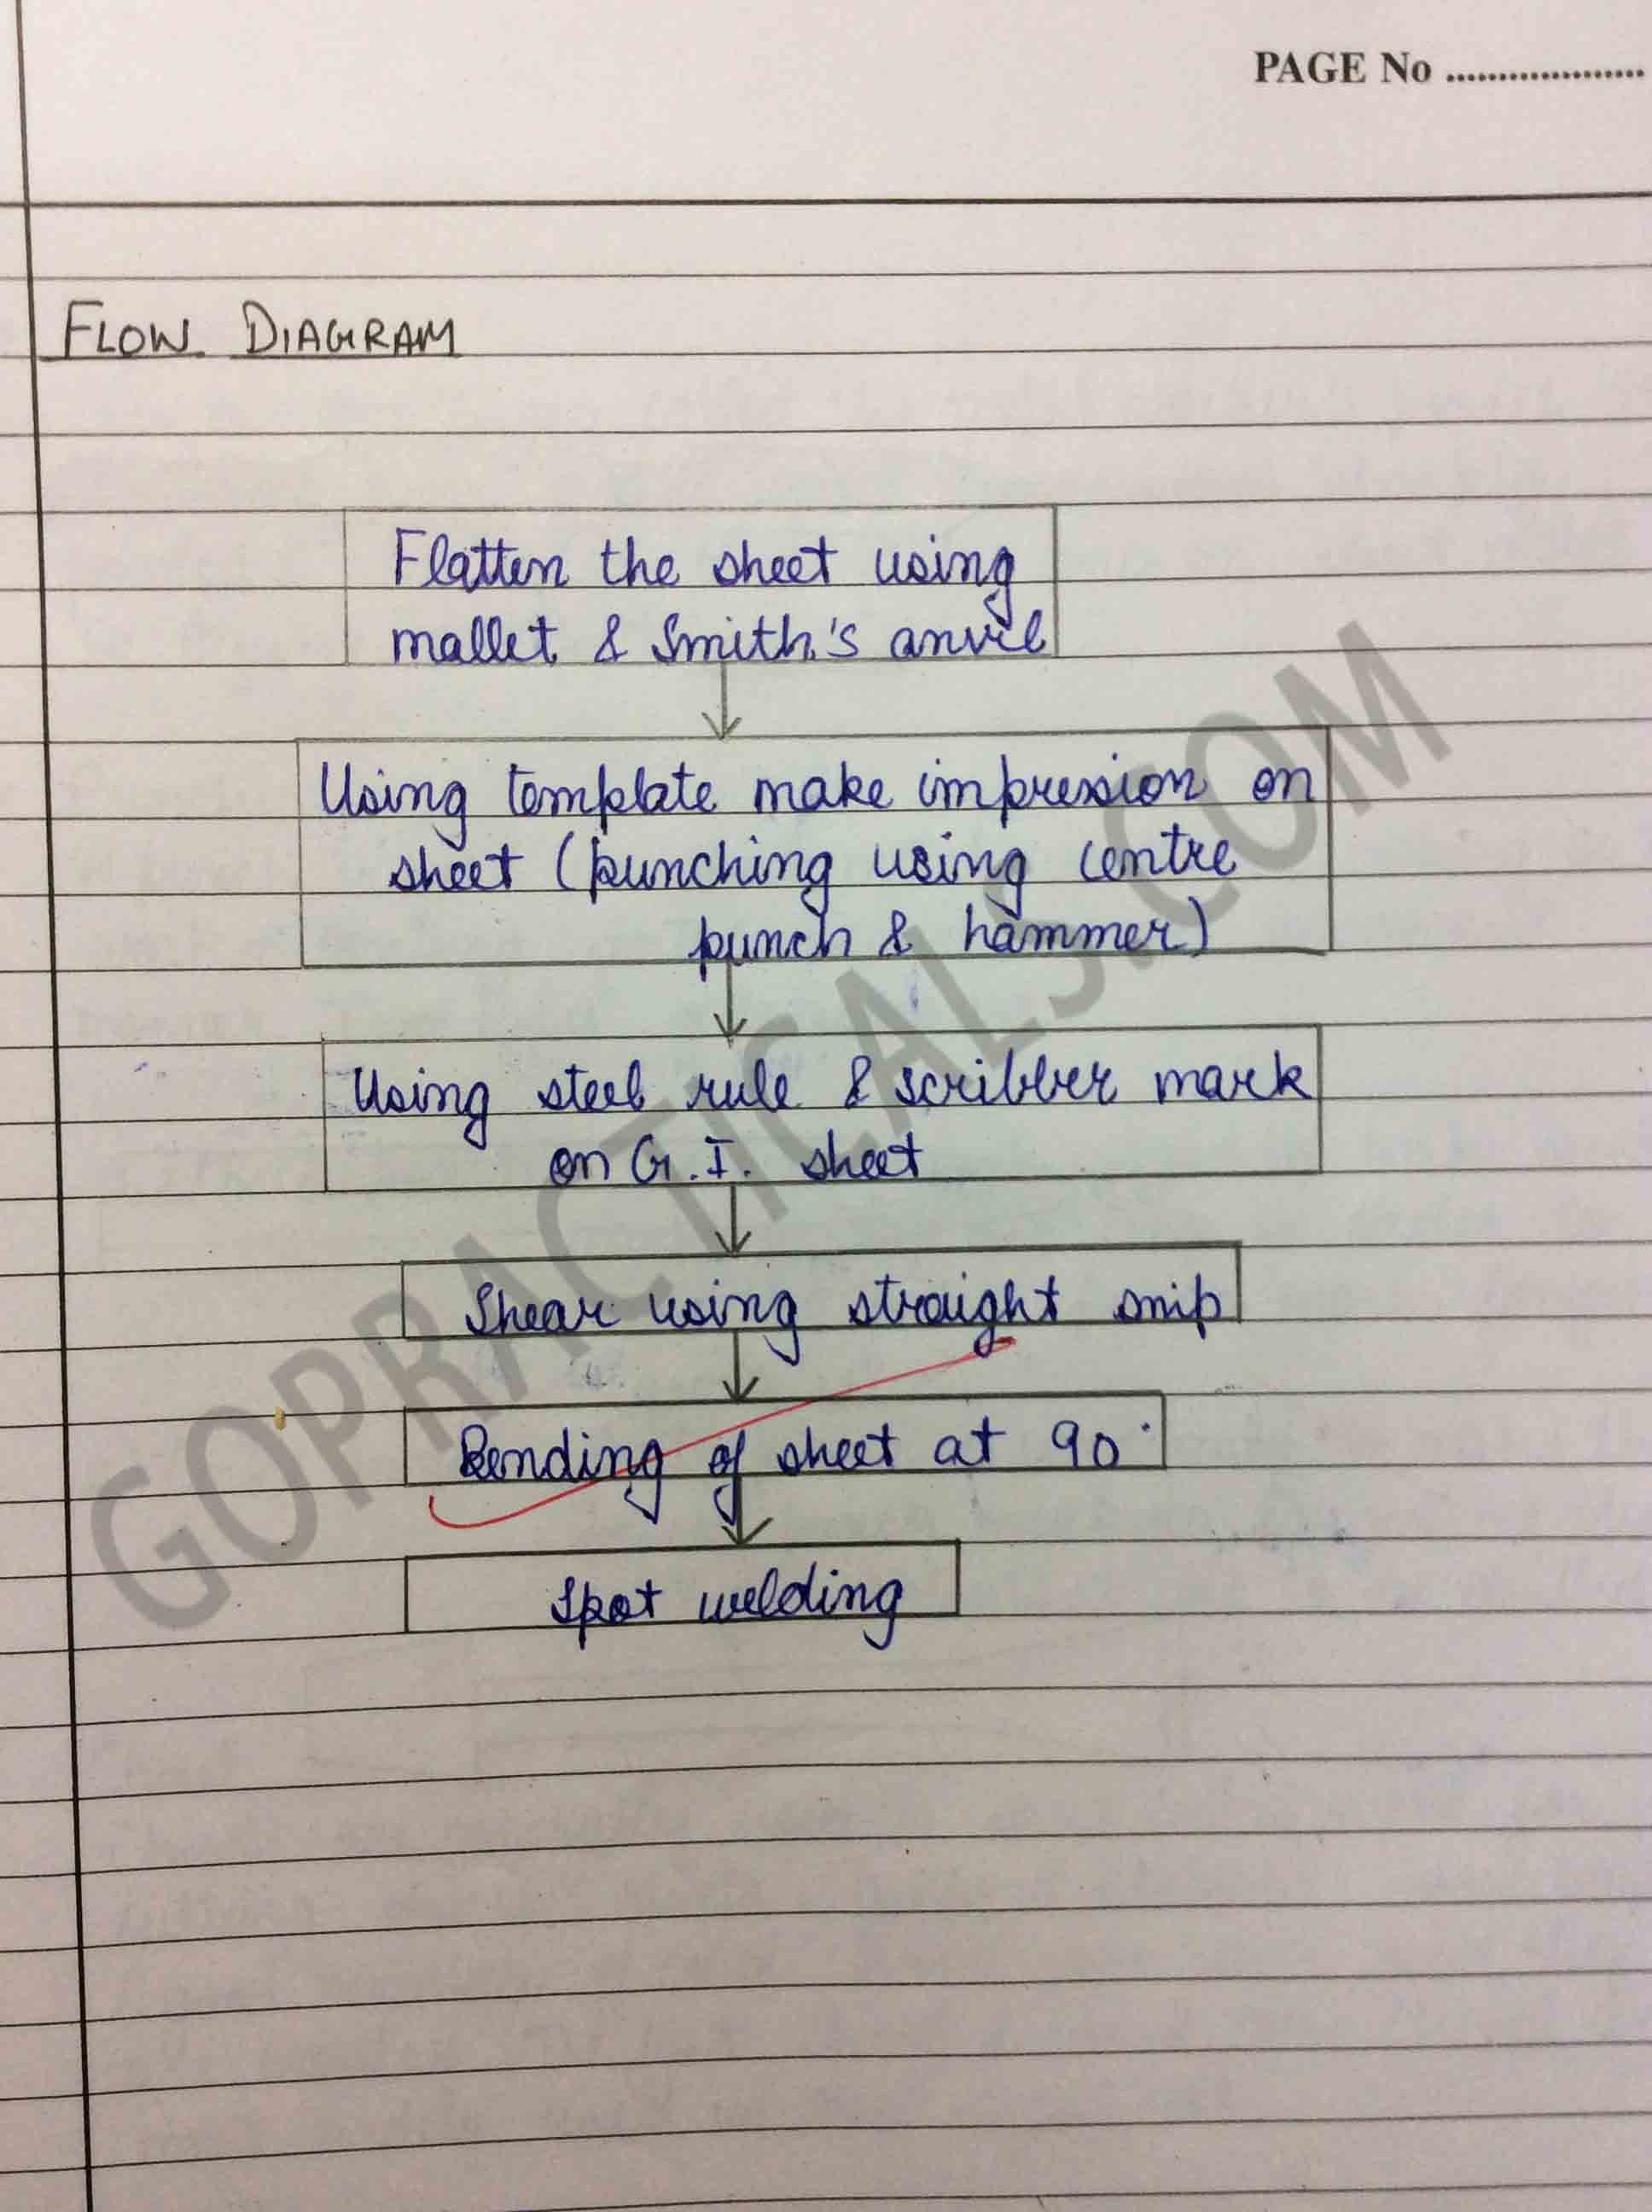 PAGE No ....................
FLOW DIAGRAM
Flatten the sheet using
mallet & Smith's anvil
Using template make impression on
sheet (punching using centre
punch & hammer)
Using steel rule & scribber mark
on G.I. sheet
Shear using straight snip
Bending of sheet at 90°
Spot welding
GOPRACTICALS.COM